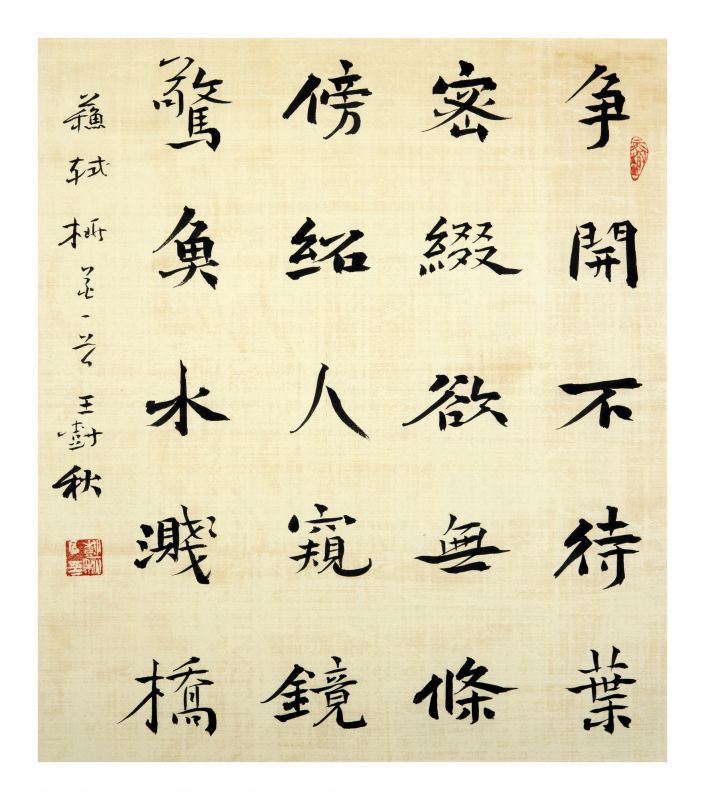 争開不待葉
密綴欲無條
傍紹人窺鏡
驚魚水濺橋
蘇軾花一首王樹秋